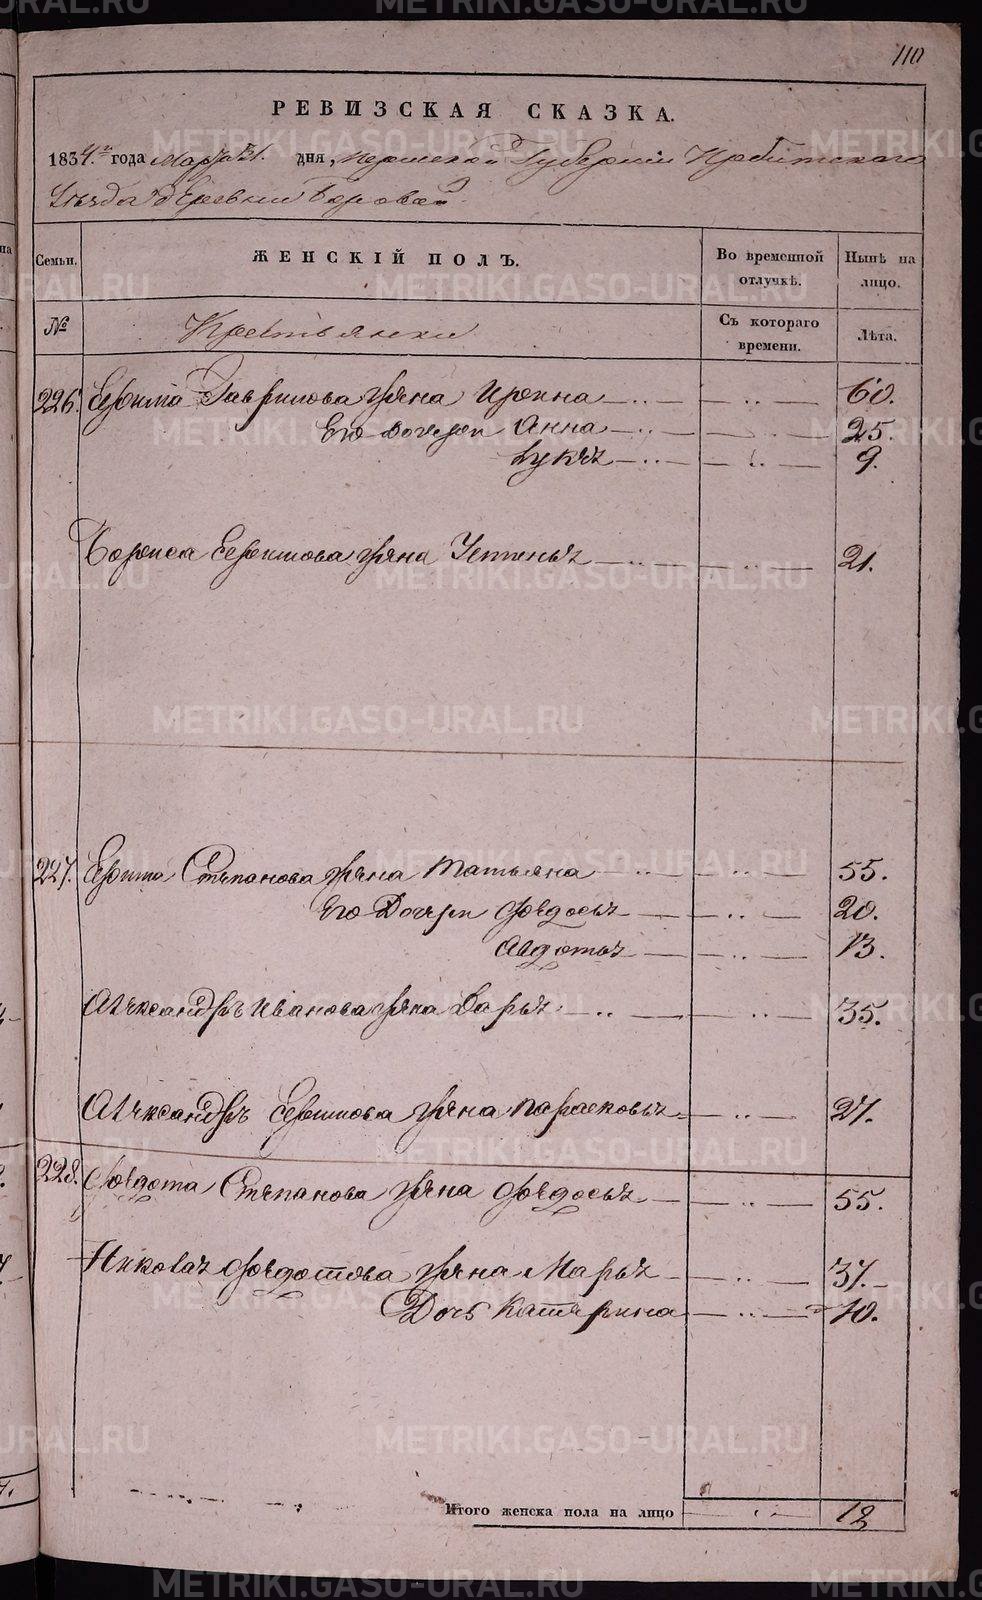 110
РЕВИЗСКАЯ СКАЗКА.
1834.го года Марта 31. дня, Пермской Губернии Ирбитского
Уезда деревни Боровой
Семьи. ЖЕНСКІЙ ПОЛЪ. Во временной отлучкѣ. Нынѣ на лицо.
№ Крестьянки Съ котораго времени. Лѣта.
226. Ефима Гаврилова жена Ирина 60.
Его Дочери Анна 25.
9.
Бориса Ефимова жена Устинья 21.
227. Ефима Степанова жена Татьяна 55.
Его Дочери Федосья 20.
Авдотья 13.
Александръ Иванова жена Дарья 35.
Александръ Ефимова жена Парасковья 27.
228. Федота Степанова жена Федосья 55.
Николая Федотова жена Марья 37.
Дочь Катерина 10.
Итого женска пола на лицо 12
METRIKI.GASO-URAL.RU